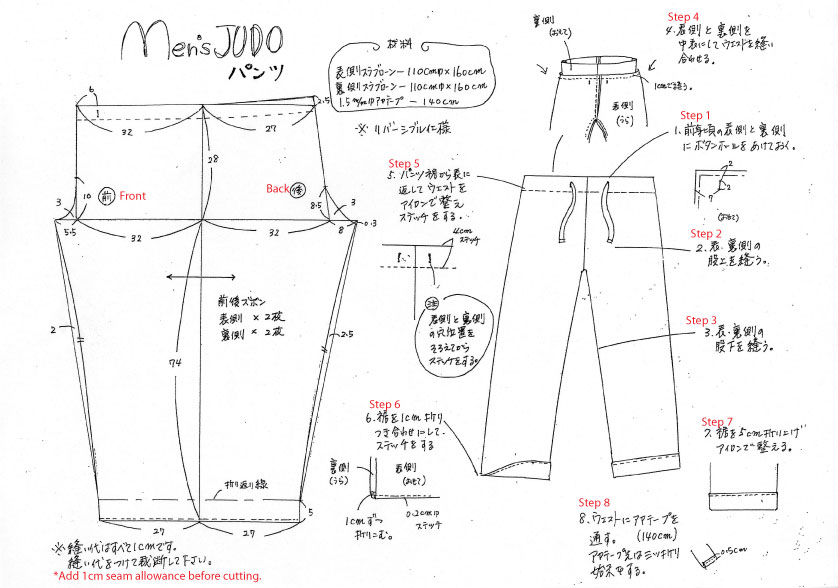 Men's JUDO
パンツ
材料
表側スラブローン－110cm巾×160cm
裏側スラブローン－110cm巾×160cm
1.5m/m巾アヤテープ－140cm
※リバーシブル仕様
6
1
2.5
32
27
28
10
前
Front
Back
後
8.5
3
3
0.3
5.5
32
32
8
前後ズボン
表側×2枚
裏側×2枚
2
2.5
74
折り返り線
5
27
27
※縫い代はすべて1cmです。
縫い代をつけて裁断して下さい。
*Add 1cm seam allowance before cutting.
Step 4
4. 表側と裏側を
中表にしてウエストを縫い
合わせる。
裏側
(おもて)
1cmで縫う。
表側
(うら)
Step 1
1. 前身頃の表側と裏側
にボタンホールをあけておく。
2
2
7
(おもて)
Step 5
5. パンツ裾から表に
返してウエストを
アイロンで整え
ステッチをする。
4cm
ステッチ
注
表側と裏側
の穴位置を
そろえてから
ステッチをする。
Step 2
2. 表・裏側の
股上を縫う。
Step 3
3. 表・裏側の
股下を縫う。
Step 6
6. 裾を1cm折り
つき合わせにして
ステッチをする
裏側
(うら)
表側
(おもて)
1cmずつ
折りこむ。
0.2cm巾
ステッチ
Step 7
7. 裾を5cm折り上げ
アイロンで整える。
Step 8
8. ウエストにアヤテープを
通す。(140cm)
アヤテープ先は三ツ折り
始末する。
0.5cm